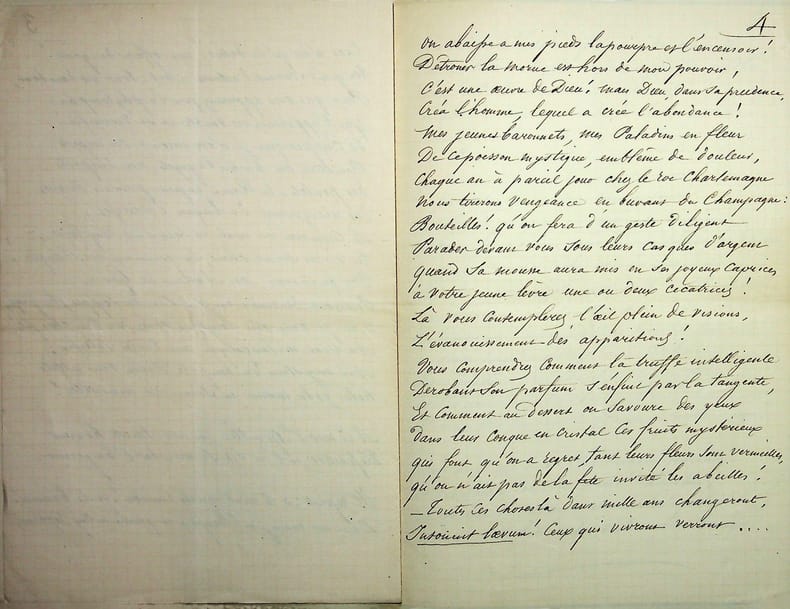 4
on abaisse a mes pieds la pourpre et l'encensoir!
Détroner la morue est hors de mon pouvoir,
C'est une œuvre de Dieu! mais Dieu, dans sa prudence,
Créa l'homme, lequel a créé l'abondance!
Mes jeunes baronnets, mes Paladins en fleur
De ce poisson mystique, emblême de douleur,
Chaque an à pareil jour chez le roc Charlemagne
Nous tirerons vengeance en buvant du Champagne:
Bouteilles! qu'on fera d'un geste diligent
Parader devant vous sous leurs casques d'argent
quand sa mousse aura mis en ses joyeux caprices
à votre jeune lèvre une ou deux cicatrices!
Là vous contemplerez l'œil plein de visions,
L'évanouissement des apparitions!
Vous comprendrez comment la truffe intelligente
Dérobant son parfum s'enfuit par la tangente,
Et comment au dessert on savoure des yeux
dans leur conque en cristal ces fruits mystérieux
qui font qu'on a regret, tant leurs fleurs sont vermeilles,
qu'on n'ait pas de la fête invité les abeilles!
– Toutes ces choses là dans mille ans changeront,
! Ceux qui vivront verront ....
3